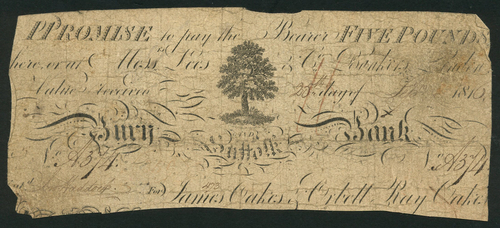 I PROMISE to pay the Bearer FIVE POUNDS
here, or at Mess.rs & Co. Bankers
Value received 28th day of 1810
Bury Suffolk Bank
No. A374 No. A374
For James Oakes & Orbell Ray Oakes